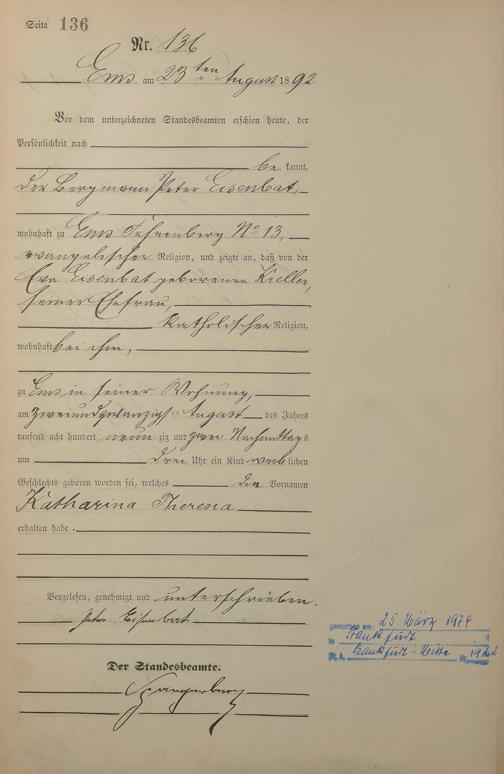 Seite 136
Nr. 136
Ems am 23ten August 1892
Vor dem unterzeichneten Standesbeamten erschien heute, der
Persönlichkeit nach
bekannt,
der Bergmann Peter Eisenbat,
wohnhaft zu Ems No 13,
evangelischer Religion, und zeigte an, daß von der
Eva Eisenbat geborenen
seiner Ehefrau,
katholischer Religion,
wohnhaft bei ihm,
zu Ems in seiner Wohnung,
am zweiundzwanzigsten August des Jahres
tausend acht hundert neunzig und zwei Nachmittags
um drei Uhr ein Kind weiblichen
Geschlechts geboren worden sei, welches die Vornamen
Katharina Theresia
erhalten habe.
Vorgelesen, genehmigt und unterschrieben.
Peter Eisenbat
Der Standesbeamte.
gestorben am: 25. März 1974
in Frankfurt
St. A. Frankfurt-Mitte Nr.